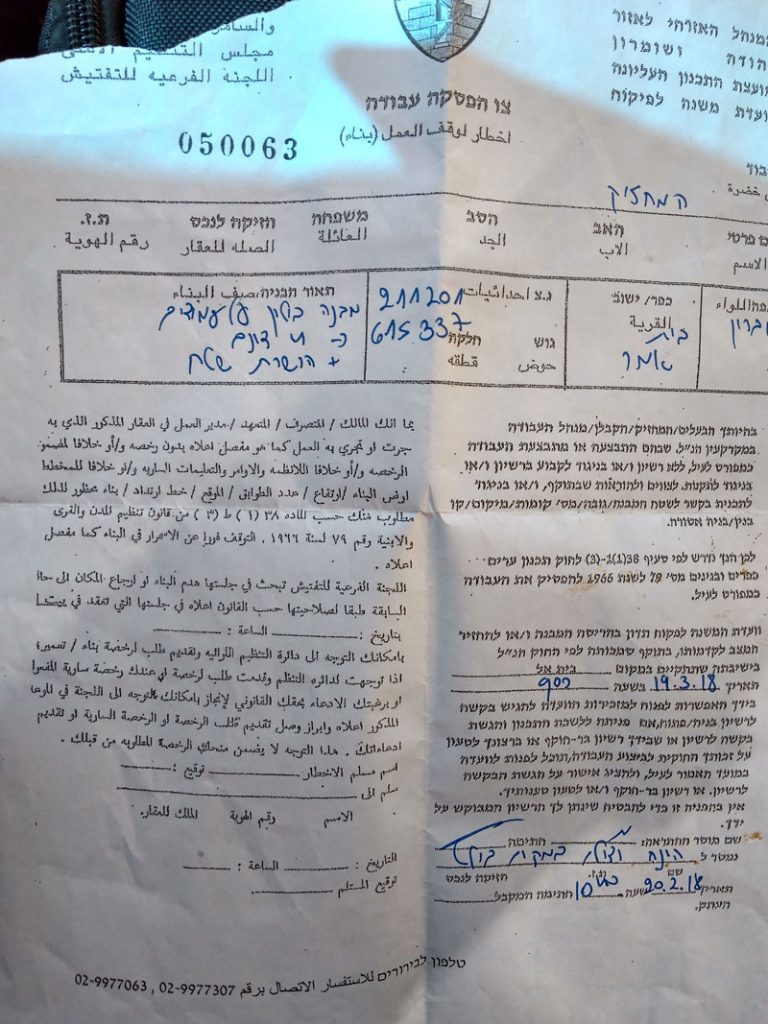 والسامر
مجلس التنظيم الاعلى
اللجنة الفرعيه للتفتيش
המנהל האזרחי לאזור
יהודה ושומרון
מועצת התכנון העליונה
ועדת משנה לפיקוח
צו הפסקה עבודה
اخطار لوقف العمل (بناء)
050063
המחזיק
חضرة
פרטי האב הסב משפחה חזיקה לנכס ת.ז.
الاسم الاب الجد العائلة الصله للعقار رقم الهوية
נפה/اللواء כפר/ ישוב נ.צ احداثيات 211201 תאור הבניה/صيف البناء
חברון القرية גוש חלקה 615337 מבנה בטון על עמודים
בית אמר حوض قطقه
+ הכשרת שטח
بما انك المالك / المتصرف / المتعهد / مدير العمل لي العقار المذكور الذي به
جرت او تجري به العمل كما هو مفصل اعلاه بدون رخصه و/أو خلافا لمضمو
الرخصه و/أو خلافا للانظمه والاوامر والتعليمات الساريه و/او خلافا للمخطط
اوض البناء /ارتفاع / عدد الطوابق / الموقع / خط ارتداد / بناء محظور لذلك
مطلوب منك حسب الماده ٣٨ (١) ط (٣) من قانون تنظيم المدن والقرى
والابنية رقم ٧٩ لسنة ١٩٦٦ . التوقف فورا عن الاستمرار في البناء كما مفصل
اعلاه .
اللجنة الفرعية للتفتيش تبحث في جلستها هدم البناء او ارجاع المكان الى حالة
السابقة طبقا لصلاحيتها حسب القانون اعلاه في جلستها التي تعقد في
بتاريخ : الساعة :
بامكانك التوجه الى دائرة التنظيم اللوائيه وتقديم طلب لرخصة بناء / تعمير؛
اذا توجهت لدائره التنظم وقدمت طلب لرخصة او عندك رخصة سارية المفعول
او برغبتك الادعاء بحقك القانوني لإنجاز بامكانك التوجه الى اللجنة في الموعد
المذكور اعلاه وابراز وصل تقديم طلب الرخصة او الرخصة السارية او تقديم
ادعاءاتك . هذا التوجه لا يضمن منحك الرخصة المطلوبه من قبلك .
اسم مسلم الاخطار : توقيع :
سلم الى
الاسم وقم الهوية المالك للعقار.
التاريخ : الساعة :
توقيع المستلم
בהיותך הבעלים/המחזיק/הקבלן/מנהל העבודה
במקרקעין הנ״ל. שבהם התבצעה או מתבצעת העבודה
כמפורט לעיל, ללא רשיון ו/או בניגוד לקבוע ברשיון ו/או
בניגוד לתקנות. לצווים ולהוראות שבתוקף, ו/או בניגוד
לתכנית בקשר לשטח המבנה/גובה/מס׳ קומות/מיקום/קו
בנין/בניה אסורה.
לכן הנך נדרש לפי סעיף 38(1)-(3) לחוק תכנון ערים
כפרים ובנינים מס׳ 79 לשנת 1966 להפסיק את העבודה
כמפורט לעיל.
וועדת המשנה לפקוח תדון בהריסת המבנה ו/או להחזיר
המצב לקדמותו, בתוקף סמכותה לפי החוק הנ״ל
בישיבתה שתתקיים במקום בית אל
תאריך 19.3.18 בשעה
בידך האפשרות לפנות למזכירות הוועדה להגיש בקשה
לרשיון בניה/פתוח, אם פניתה ללשכת התכנון והגשת
בקשה לרשיון או שבידך רשיון בר-תוקף או ברצונך לטעון
על זכותך החוקית לביצוע העבודה, תוכל לפנות לוועדה
במועד האמור לעיל, ולהציג אישור על הגשת הבקשה
לרשיון. או רשיון בר-תוקף ו/או לטעון טענותיך.
אין בהפניה זו כדי להבטיח שינתן לך הרשיון המבוקש על
ידך.
שם מוסר ההתראה: חתימה
נמסר ל הונח וצולם במקום בולט
שם ת.ז. חזיקה לנכס
תאריך 20.2.18 שעה 10 חתימה המקבל
העתק.
טלפון לבירורים للاستفسار الاتصال برقم 02-9977307 , 02-9977063